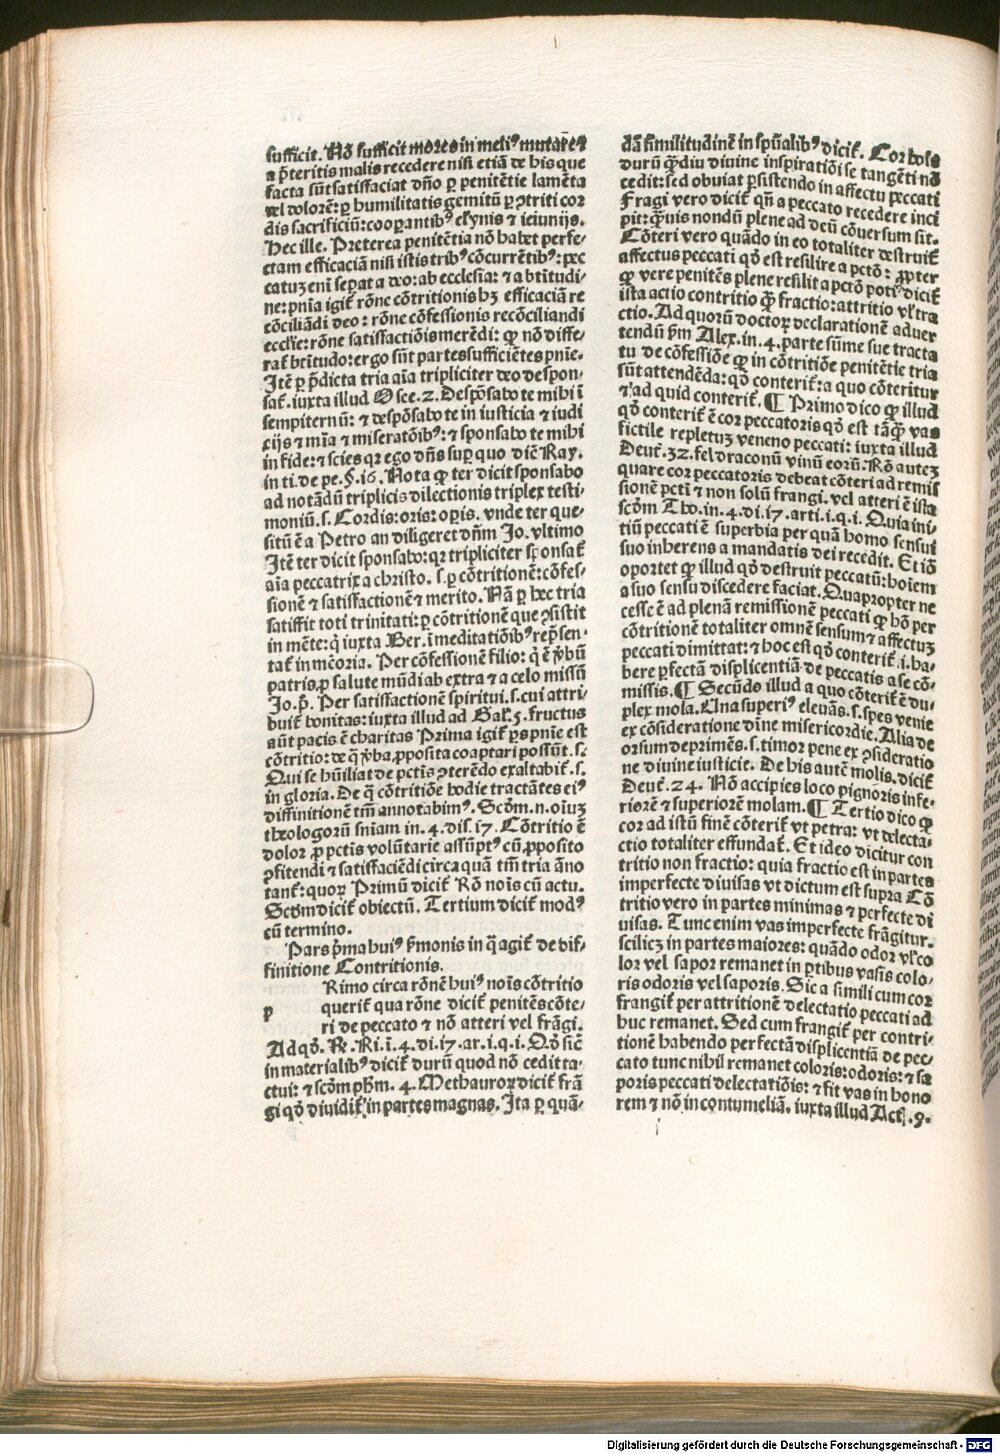 sufficit. Nō sufficit mores in meliꝰ mutare ⁊
a p̄teritis malis recedere nisi etiā de his que
facta sūt satisfaciat dn̄o ꝑ penitētie lamēta
vel dolorē: ꝑ humilitatis gemitū ꝑ ꝯtriti cor
dis sacrificiū: cooꝑantibꝰ elynis ⁊ ieiunijs.
Hec ille. Preterea penitētia nō habet perfe⸗
ctam efficaciā nisi istis tribꝰ cōcurrētibꝰ: pec
catuꝫ eni seꝑat a deo: ab ecclesia: ⁊ a btitudi⸗
ne: pnia igit᷑ rōne cōtritionis hꝫ efficaciā re
cōciliādi deo: rōne cōfessionis recōciliandi
ecclie: rōne satisfactiōis merēdi: ꝙ nō diffe⸗
rat᷑ btitudo: ergo sūt partes sufficiētes pnie.
Itē ꝑ p̄dicta tria aīa tripliciter deo despon⸗
sat᷑. iuxta illud Osee. 2. Despōsabo te mihi ī
sempiternū: ⁊ despōsabo te in iusticia ⁊ iudi
cijs ⁊ mīa ⁊ miseratōibꝰ: ⁊ sponsabo te mihi
in fide: ⁊ scies qꝛ ego dn̄s suꝑ quo dicit Ray.
in ti. de pe. §. 16. Nota ꝙ ter dicit sponsabo
ad notādū triplicis dilectionis triplex testi⸗
moniū. s. Cordis: oris: oꝑis. vnde ter que⸗
situ ē a Petro an diligeret dn̄m Jo. vltimo
Itē ter dicit sponsabo: qꝛ tripliciter sponsat᷑
aīa peccatrix a christo. s. ꝑ cōtritionē: cōfes⸗
sionē ⁊ satisfactionē ⁊ merito. Nā ꝑ hec tria
satisfit toti trinitati: ꝑ cōtritionē que ꝯsistit
in mēte: q̇ iuxta Ber. ī meditatiōibꝰ rep̄sen⸗
tat᷑ in mēoria. Per cōfessionē filio: q̇ ē v̄bū
patris, ꝓ salute mūdi ab extra ⁊ a celo missū
Jo. p̄. Per satisfactionē spiritui. s. cui attri⸗
buit᷑ bonitas: iuxta illud ad Gal. 5. fructus
aūt pacis ē charitas Prima igit᷑ ꝑs pnie est
cōtritio: de q̄ v̄ba ꝓposita coaptari possūt. s.
Qui se hūiliat de pctis ꝯterēdo exaltabit᷑. s.
in gloria. De q̄ cōtritiōe hodie tractātes eiꝰ
diffinitionē tm̄ annotabimꝰ. Scōm. n. oīuꝫ
theologorū sniam in. 4. dis. 17. Cōtritio ē
dolor ꝓ pctis volūtarie assūptꝰ cū ꝓposito
ꝯfitendi ⁊ satisfaciēdi circa quā tm̄ tria āno
tant᷑: quoꝝ Primū dicit᷑ Rō nois cū actu.
Scōm dicit᷑ obiectū. Tertium dicit᷑ modꝰ
cū termino.
Pars p̄ma huiꝰ ẜmonis in q̄ agit᷑ de dif⸗
finitione Contritionis.
p Rimo circa rōnē huiꝰ nois cōtritio
querit᷑ qua rōne dicit᷑ penitēs cōte⸗
ri de peccato ⁊ nō atteri vel frāgi.
Ad qō. R̄. Ri. ī. 4. di. 17. ar. i. q. i. Qō sic̄
in materialibꝰ dicit᷑ durū quod nō cedit ta⸗
ctui: ⁊ scōm pḣm. 4. Methauroꝝ dicit᷑ frā
gi qō diuidit᷑ in partes magnas. Ita ꝑ quā⸗
dā similitudinē in spūalibꝰ dicit᷑. Cor hois
durū q̄diu diuine inspiratiōi se tangēti nō
cedit: sed obuiat ꝑsistendo in affectu peccati
Fragi vero dicit᷑ qn̄ a peccato recedere inci
pit: q̄uis nondū plene ad deū cōuersum sit.
Cōteri vero quādo in eo totaliter destruit᷑
affectus peccati qō est resilire a pctō: ꝓpter
ꝙ vere penitēs plene resilit a pctō poti᷒ dicit᷑
ista actio contritio q̄ fractio: attritio vl̓ tra
ctio. Ad quorū doctoꝝ declarationē aduer
tendū p̄m Alex. in. 4. parte sūme sue tracta
tu de cōfessiōe ꝙ in cōtritiōe penitētie tria
sūt attendēda: qō conterit᷑: a quo cōteritur
⁊ ad quid conterit᷑. ¶ Primo dico ꝙ illud
qō conterit᷑ ē cor peccatoris qō est tāq̄ vas
fictile repletuꝫ veneno peccati: iuxta illud
Deut᷑. 32. fel draconū vinū eorū. Rō auteꝫ
quare cor peccatoris debeat cōteri ad remis
sionē pcti ⁊ non solū frangi. vel atteri ē ista
scōm Tho. in. 4. di. 17. arti. i. q. i. Quia ini⸗
tiū peccati ē superbia per quā homo sensui
suo inherens a mandatis dei recedit. Et iō
oportet ꝙ illud qō destruit peccatū: hoiem
a suo sensu discedere faciat. Quapropter ne
cesse ē ad plenā remissionē peccati ꝙ hō per
cōtritionē totaliter omnē sensum ⁊ affectuꝫ
peccati dimittat: ⁊ hoc est qō conterit᷑. i. ha⸗
bere ꝑfectā displicentiā de peccatis a se cō⸗
missis. ¶ Secūdo illud a quo cōterit᷑ ē du⸗
plex mola. Una superiꝰ eleuās. s. spes venie
ex cōsideratione diuīe misericordie. Alia de
orsum deprimēs. s. timor pene ex ꝯsideratio
ne diuine iusticie. De his autē molis. dicit᷑
Deut᷑. 24. Nō accipies loco pignoris infe⸗
riorē ⁊ superiorē molam. ¶ Tertio dico ꝙ
cor ad istū finē cōterit᷑ vt petra: vt delecta⸗
ctio totaliter effundat᷑. Et ideo dicitur con
tritio non fractio: quia fractio est in partes
imperfecte diuisas vt dictum est supra Cō
tritio vero in partes minimas ⁊ perfecte di
uisas. Tunc enim vas imperfecte frāgitur.
scilicꝫ in partes maiores: quādo odor vl̓ co
lor vel sapor remanet in ꝑtibus vasis colo⸗
ris odoris vel saporis. Sic a simili cum cor
frangit᷑ per attritionē delectatio peccati ad
huc remanet. Sed cum frangit᷑ per contri⸗
tionē habendo perfectā displicentiā de pec⸗
cato tunc nihil remanet coloris: odoris: ⁊ sa
poris peccati delectatiōis: ⁊ fit vas in hono
rem ⁊ nō in contumeliā. iuxta illud Act. 9.
Digitalisierung gefördert durch die Deutsche Forschungsgemeinschaft - DFG